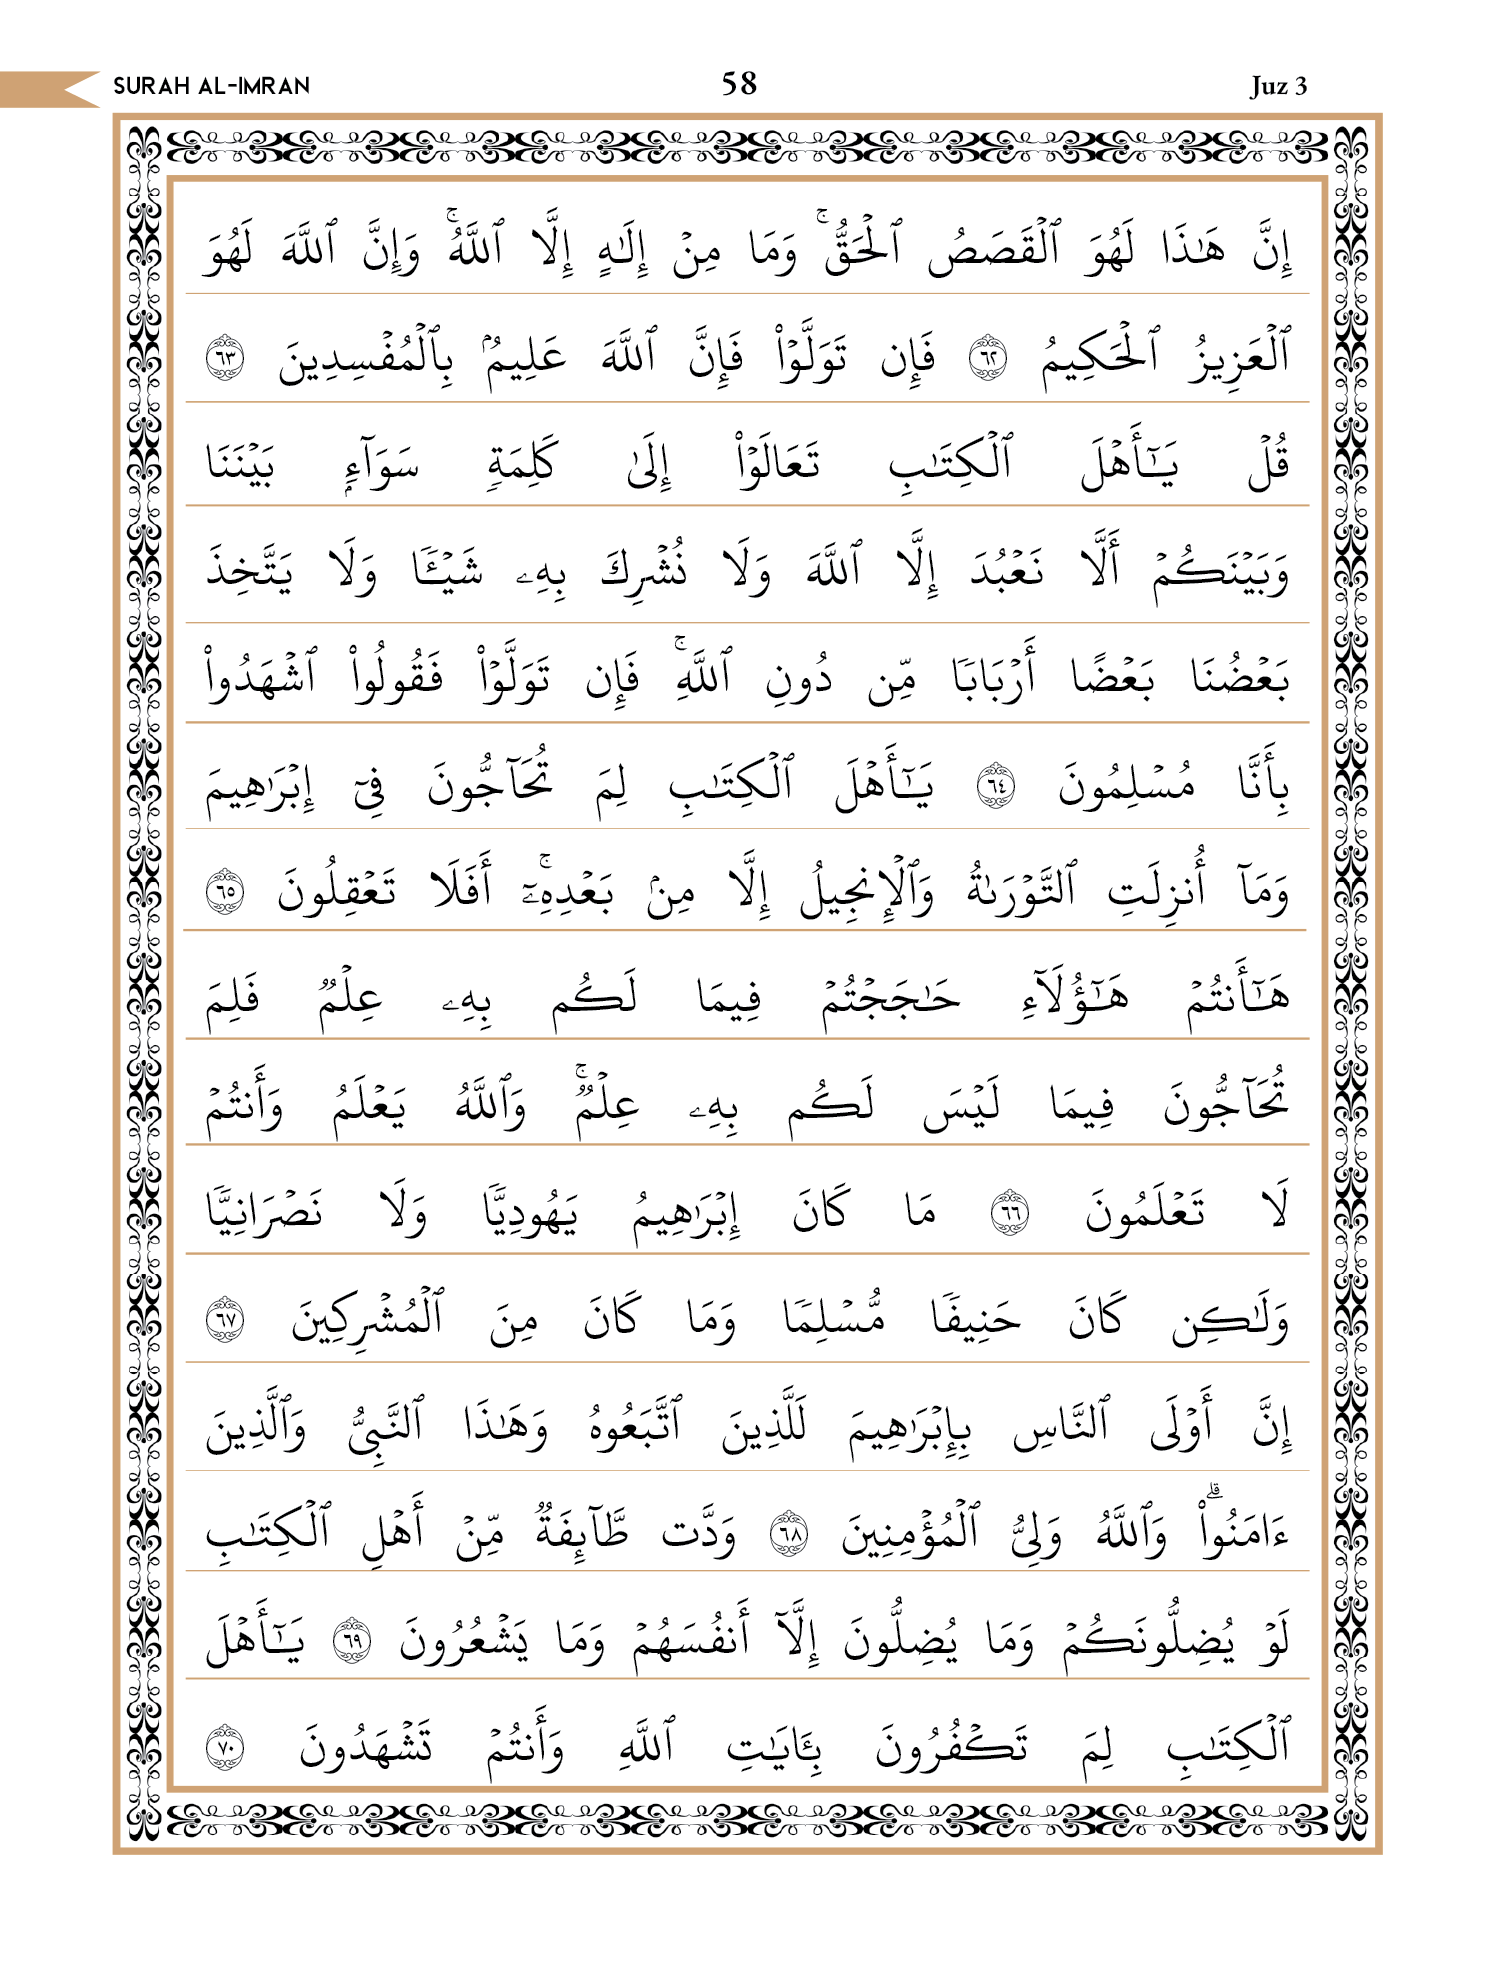 SURAH AL-IMRAN 58 Juz 3
إِنَّ هَـٰذَا لَهُوَ ٱلْقَصَصُ ٱلْحَقُّ ۚ وَمَا مِنْ إِلَـٰهٍ إِلَّا ٱللَّهُ ۚ وَإِنَّ ٱللَّهَ لَهُوَ
ٱلْعَزِيزُ ٱلْحَكِيمُ ٦٢ فَإِن تَوَلَّوْا۟ فَإِنَّ ٱللَّهَ عَلِيمٌۢ بِٱلْمُفْسِدِينَ ٦٣
قُلْ يَـٰٓأَهْلَ ٱلْكِتَـٰبِ تَعَالَوْا۟ إِلَىٰ كَلِمَةٍ سَوَآءٍۭ بَيْنَنَا
وَبَيْنَكُمْ أَلَّا نَعْبُدَ إِلَّا ٱللَّهَ وَلَا نُشْرِكَ بِهِۦ شَيْـًٔا وَلَا يَتَّخِذَ
بَعْضُنَا بَعْضًا أَرْبَابًا مِّن دُونِ ٱللَّهِ ۚ فَإِن تَوَلَّوْا۟ فَقُولُوا۟ ٱشْهَدُوا۟
بِأَنَّا مُسْلِمُونَ ٦٤ يَـٰٓأَهْلَ ٱلْكِتَـٰبِ لِمَ تُحَآجُّونَ فِىٓ إِبْرَٰهِيمَ
وَمَآ أُنزِلَتِ ٱلتَّوْرَىٰةُ وَٱلْإِنجِيلُ إِلَّا مِنۢ بَعْدِهِۦٓ ۚ أَفَلَا تَعْقِلُونَ ٦٥
هَـٰٓأَنتُمْ هَـٰٓؤُلَآءِ حَـٰجَجْتُمْ فِيمَا لَكُم بِهِۦ عِلْمٌ فَلِمَ
تُحَآجُّونَ فِيمَا لَيْسَ لَكُم بِهِۦ عِلْمٌ ۚ وَٱللَّهُ يَعْلَمُ وَأَنتُمْ
لَا تَعْلَمُونَ ٦٦ مَا كَانَ إِبْرَٰهِيمُ يَهُودِيًّا وَلَا نَصْرَانِيًّا
وَلَـٰكِن كَانَ حَنِيفًا مُّسْلِمًا وَمَا كَانَ مِنَ ٱلْمُشْرِكِينَ ٦٧
إِنَّ أَوْلَى ٱلنَّاسِ بِإِبْرَٰهِيمَ لَلَّذِينَ ٱتَّبَعُوهُ وَهَـٰذَا ٱلنَّبِىُّ وَٱلَّذِينَ
ءَامَنُوا۟ ۗ وَٱللَّهُ وَلِىُّ ٱلْمُؤْمِنِينَ ٦٨ وَدَّت طَّآئِفَةٌ مِّنْ أَهْلِ ٱلْكِتَـٰبِ
لَوْ يُضِلُّونَكُمْ وَمَا يُضِلُّونَ إِلَّآ أَنفُسَهُمْ وَمَا يَشْعُرُونَ ٦٩ يَـٰٓأَهْلَ
ٱلْكِتَـٰبِ لِمَ تَكْفُرُونَ بِـَٔايَـٰتِ ٱللَّهِ وَأَنتُمْ تَشْهَدُونَ ٧٠